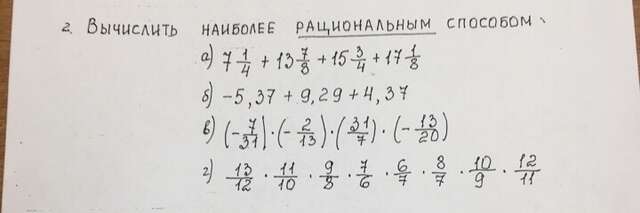 2. Вычислить наиболее рациональным способом.
а) 7 1/4 + 13 7/8 + 15 3/4 + 17 1/8
б) -5,37 + 9,29 + 4,37
в) (-7/31) · (-2/13) · (31/7) · (-13/20)
г) 13/12 · 11/10 · 9/8 · 7/6 · 6/7 · 8/7 · 10/9 · 12/11